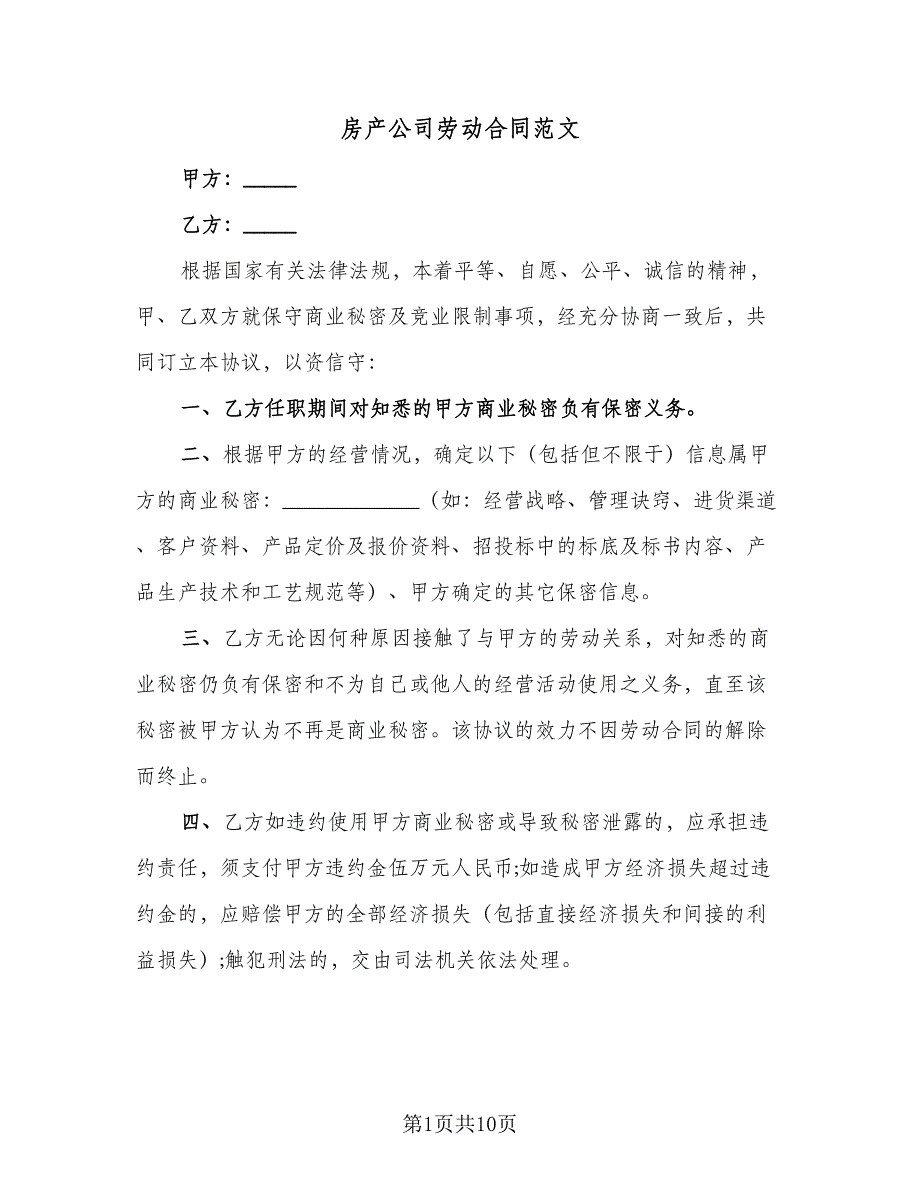 房产公司劳动合同范文
甲方：_____
乙方：_____
根据国家有关法律法规，本着平等、自愿、公平、诚信的精神，
甲、乙双方就保守商业秘密及竞业限制事项，经充分协商一致后，共
同订立本协议，以资信守：
一、乙方任职期间对知悉的甲方商业秘密负有保密义务。
二、根据甲方的经营情况，确定以下（包括但不限于）信息属甲
方的商业秘密：_____________（如：经营战略、管理诀窍、进货渠道
、客户资料、产品定价及报价资料、招投标中的标底及标书内容、产
品生产技术和工艺规范等）、甲方确定的其它保密信息。
三、乙方无论因何种原因接触了与甲方的劳动关系，对知悉的商
业秘密仍负有保密和不为自己或他人的经营活动使用之义务，直至该
秘密被甲方认为不再是商业秘密。该协议的效力不因劳动合同的解除
而终止。
四、乙方如违约使用甲方商业秘密或导致秘密泄露的，应承担违
约责任，须支付甲方违约金伍万元人民币;如造成甲方经济损失超过违
约金的，应赔偿甲方的全部经济损失（包括直接经济损失和间接的利
益损失）;触犯刑法的，交由司法机关依法处理。
第1页共10页